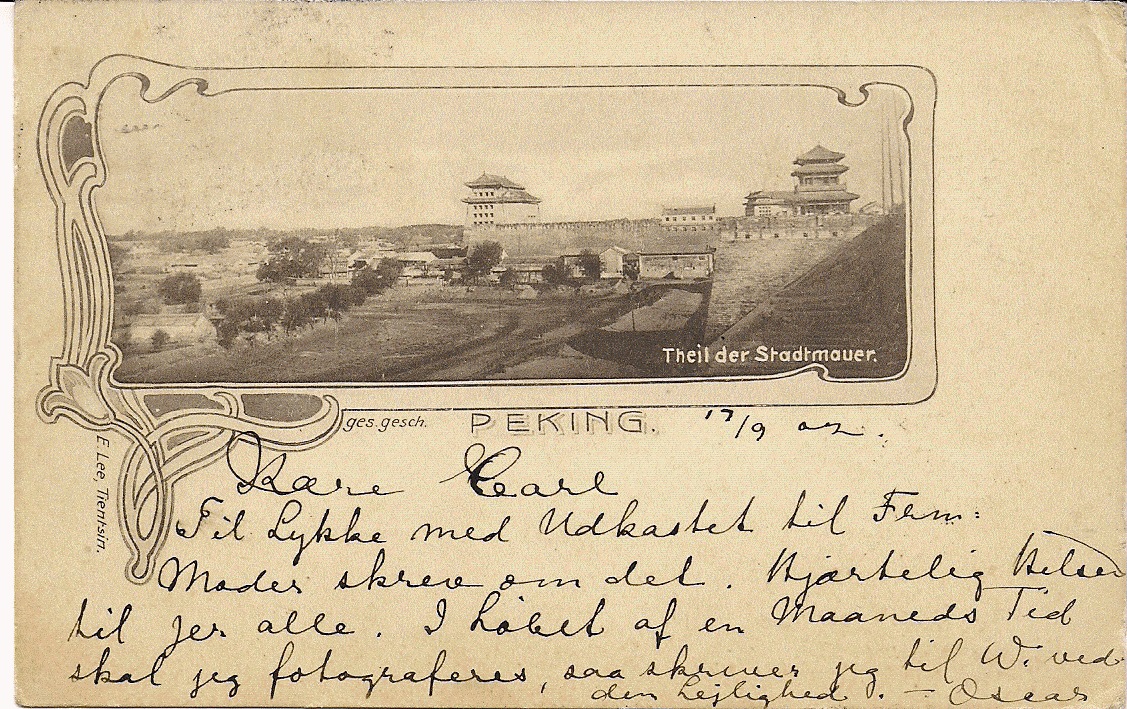 Theil der Stadtmauer.
ges. gesch. PEKING. 17/9 02.
E. Lee, Tientsin.
Kære Carl
Til Lykke med Udkastet til Frm:
Moder skrev om det. Hjærtelig Hilsen
til jer alle. I Løbet af en Maaneds Tid
skal jeg fotograferes, saa skriver jeg til W. ved
den Lejlighed. — Oscar